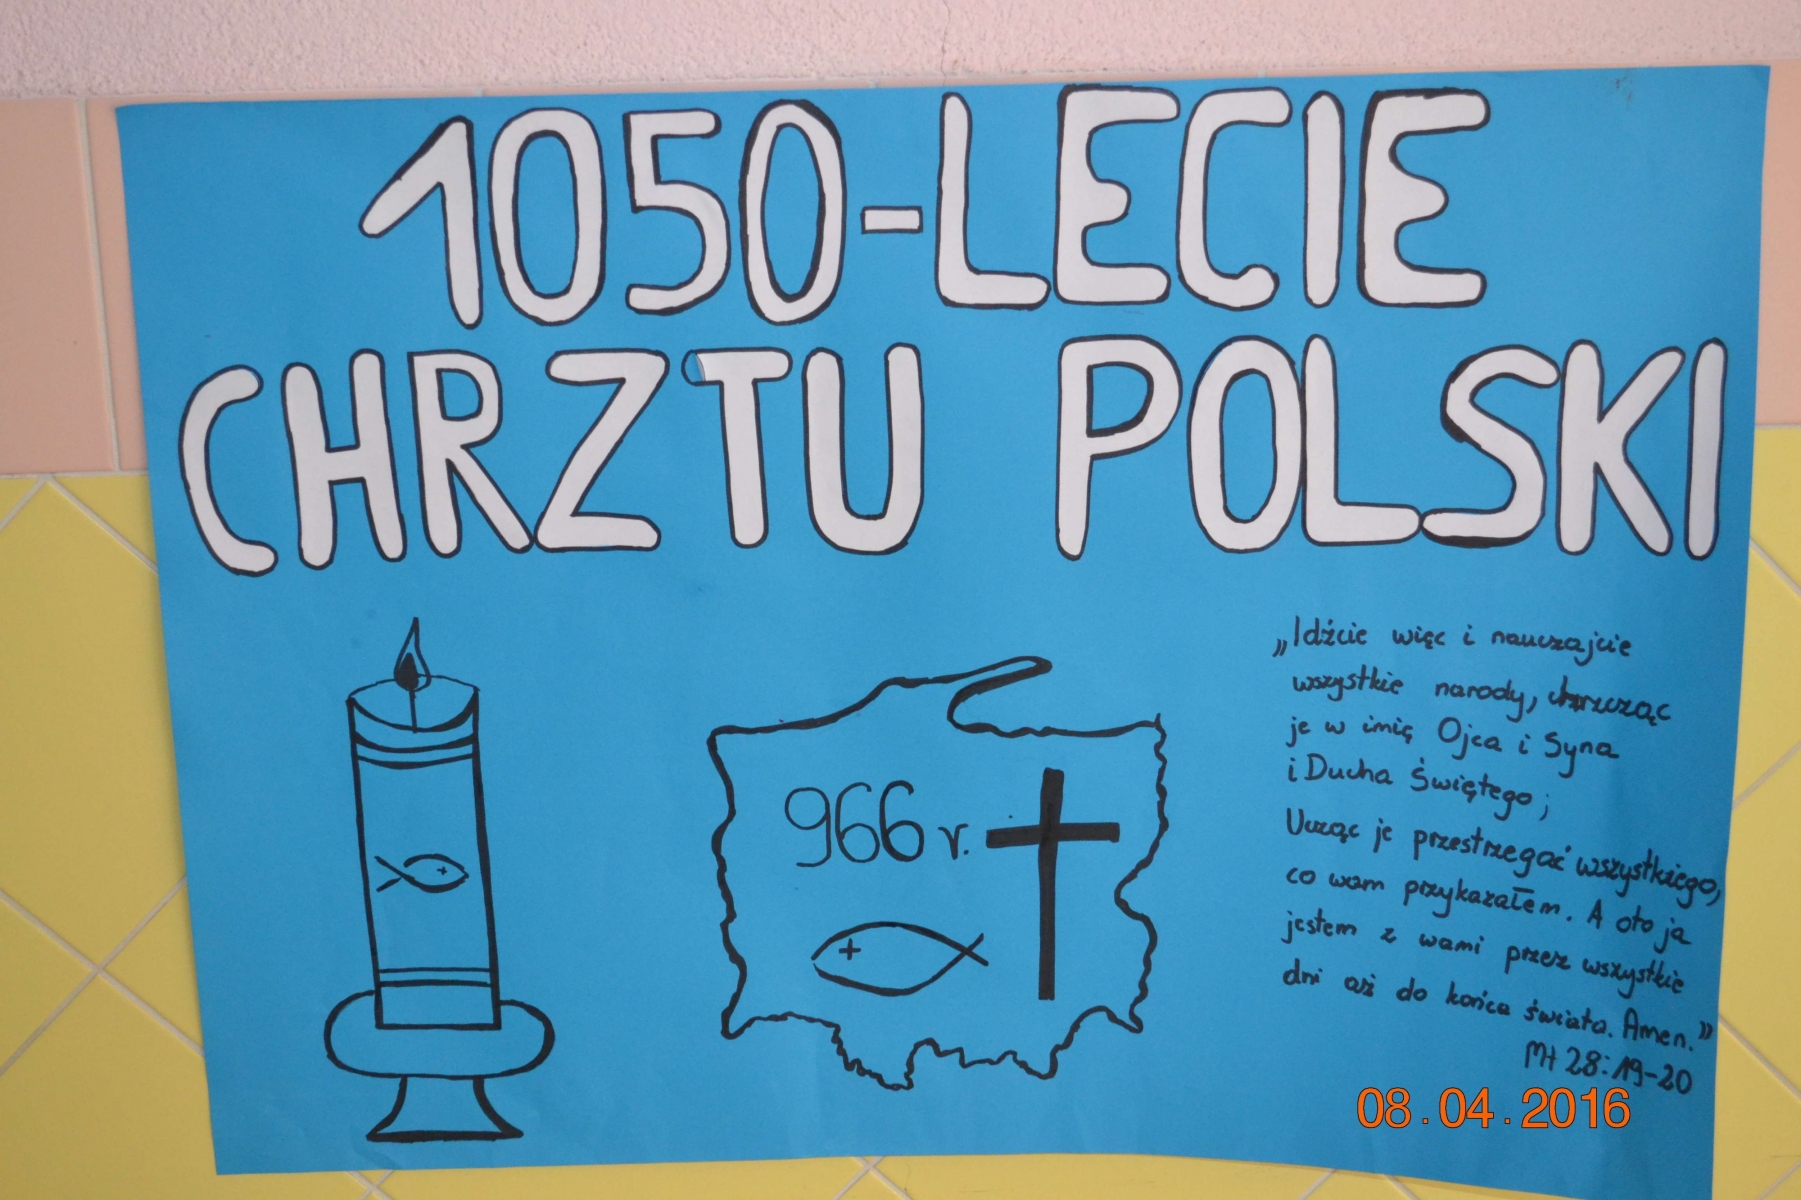 1050-LECIE
CHRZTU POLSKI
966 r.
„Idźcie więc i nauczajcie
wszystkie narody, chrzcząc
je w imię Ojca i Syna
i Ducha Świętego;
Ucząc je przestrzegać wszystkiego,
co wam przykazałem. A oto ja
jestem z wami przez wszystkie
dni aż do końca świata. Amen.”
Mt 28:19-20
08.04.2016